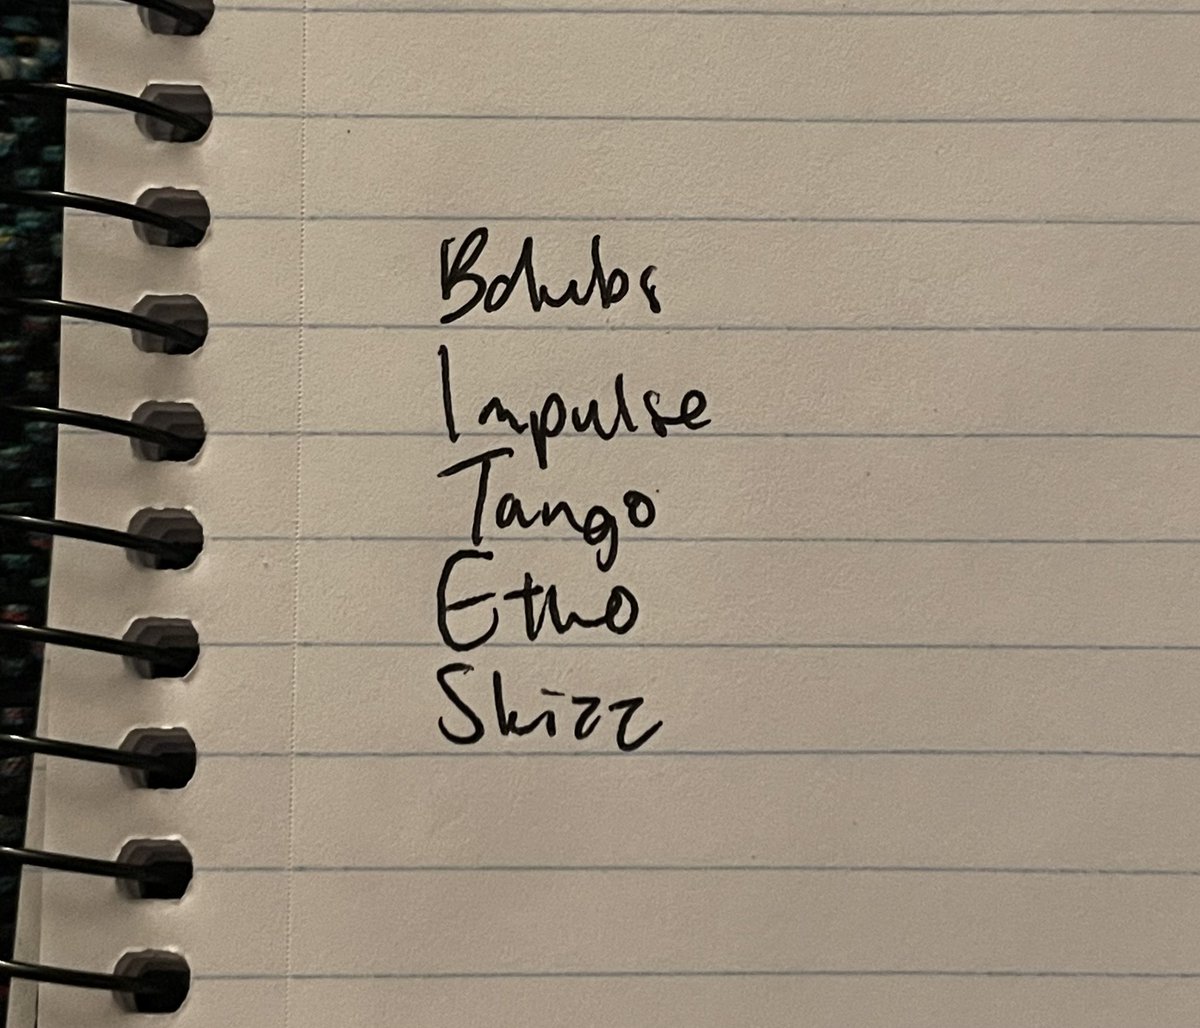 Bdubs
Impulse
Tango
Etho
Skizz